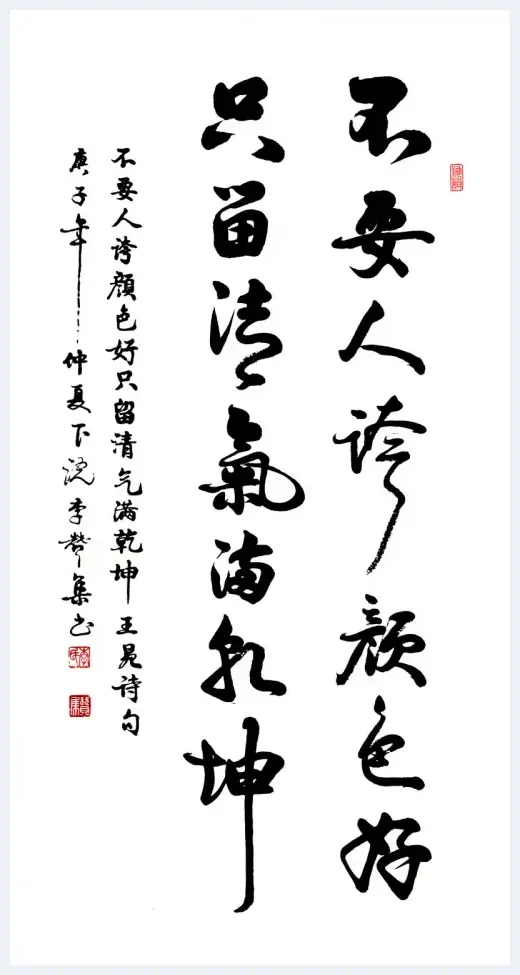 不要人誇顏色好
只留清氣滿乾坤
不要人誇顏色好只留清气满乾坤王冕詩句
庚子年仲夏下浣李贊集书